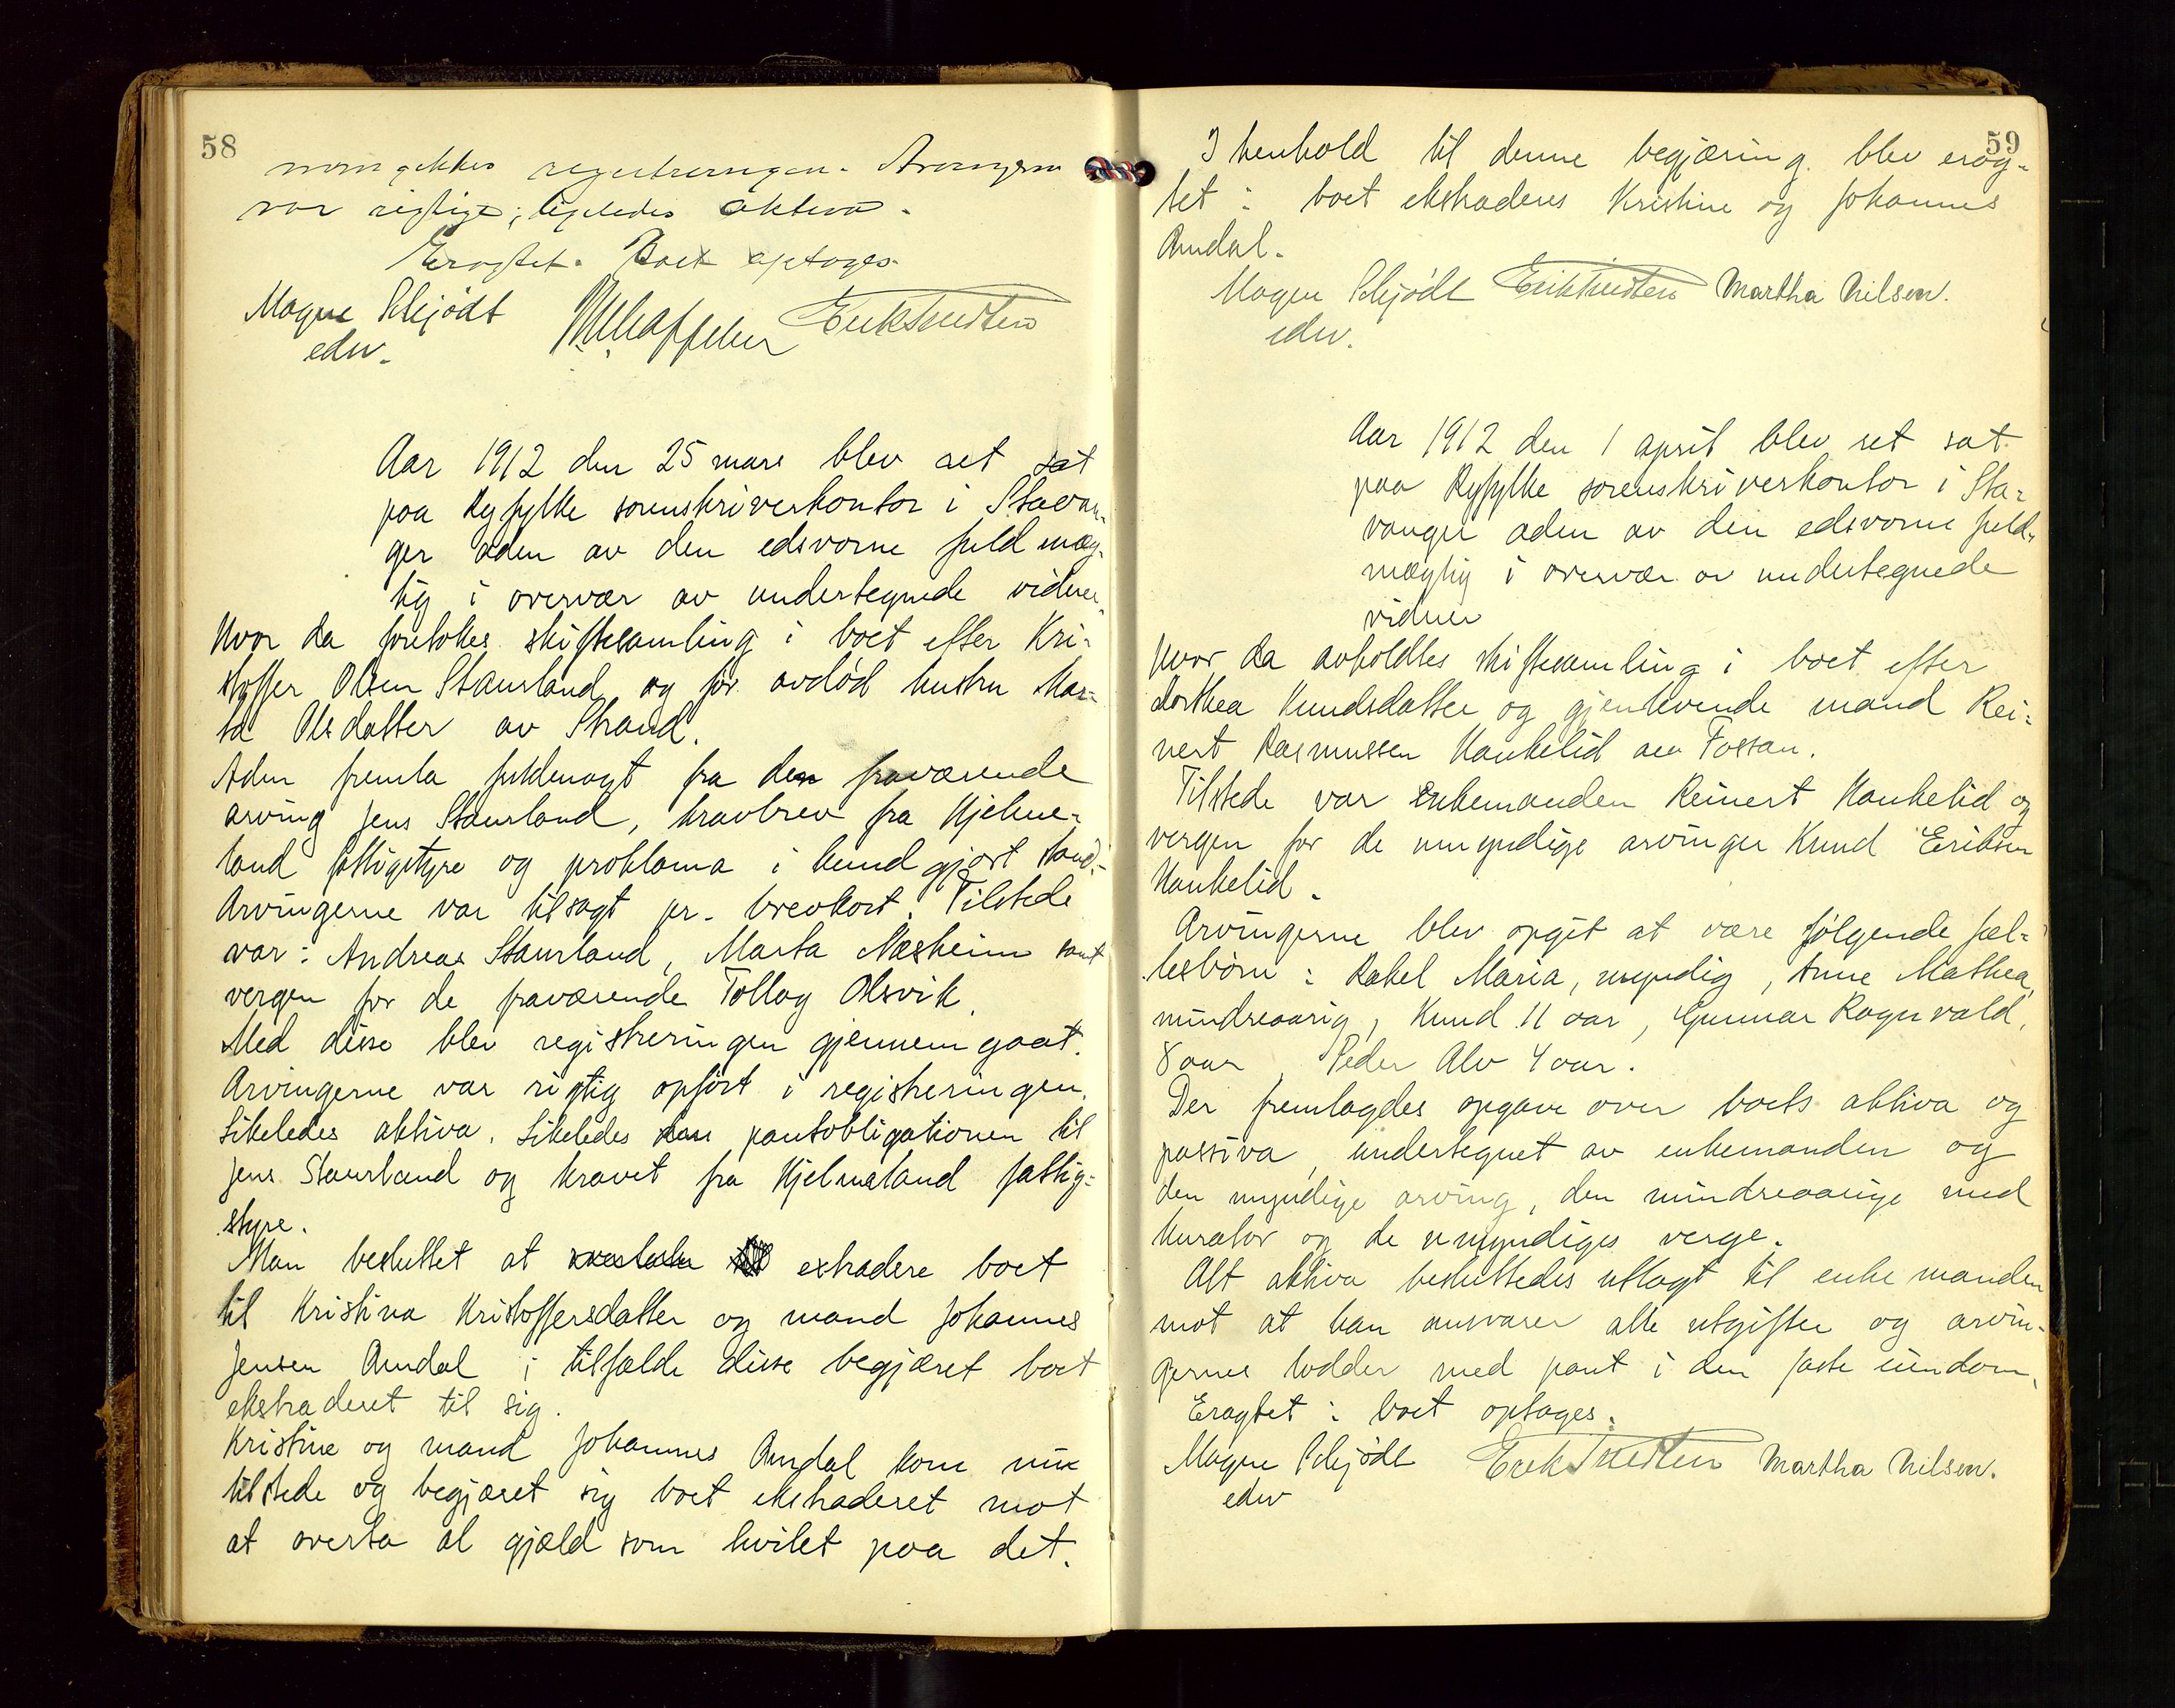 58
nemgikkes registreringen. Arvingerne
var rigtige; ligeledes aktiva.
Eragtet. Boet optages.
Magne Schjødt
edsv.
Erik Tveiten
Aar 1912 den 25 mars blev ret sat
paa Ryfylke sorenskriverkontor i Stavan-
ger aden av den edsvorne fuldmæg-
tig i overvær av undertegnede vidner.
Hvor da foretokes skiftesamling i boet efter Kri-
stoffer Olsen Staursland og før avdød hustru Mar-
ta Olsdatter av Strand.
Aden fremla fuldmagt fra den fraværende
arving Jens Staursland, kravbrev fra Hjelme-
land fattigstyre og proklama i kundgjort stand.
Arvingerne var tilsagt pr. brevkort. Tilstede
var: Andreas Staursland, Marta Næsheim samt
vergen for de fraværende Tollag Olsvik.
Med disse blev registreringen gjennemgaat.
Arvingerne var rigtig opført i registreringen.
Likeledes aktiva. Likeledes pantobligationen til
Jens Staursland og kravet fra Hjelmeland fattig-
styre.
Man besluttet at extradere boet
til Kristina Kristoffersdatter og mand Johannes
Jensen Amdal i tilfælde disse begjæret boet
ekstraderet til sig.
Kristine og mand Johannes Amdal kom nu
tilstede og begjæret sig boet ekstraderet mot
at overta al gjæld som hvilet paa det.
59
I henhold til denne begjæring blev erag-
tet: boet ekstraderes Kristine og Johannes
Amdal.
Magne Schjødt Erik Tveiten Martha Nilsen.
edsv.
Aar 1912 den 1 april blev ret sat
paa Ryfylke sorenskriverkontor i Sta-
vanger aden av den edsvorne fuld-
mægtig i overvær av undertegnede
vidner
Hvor da avholdtes skiftesamling i boet efter
Dorthea Knudsdatter og gjenlevende mand Rei-
nert Rasmussen Haukelid av Fossan.
Tilstede var enkemanden Reinert Haukelid og
vergen for de umyndige arvinger Knud Eriksen
Haukelid.
Arvingerne blev opgit at være følgende fæl-
lesbørn: Rakel Maria, myndig, Anne Mathea,
mindreaarig, Knud 11 aar, Gunnar Ragnvald,
8 aar, Peder Alv 4 aar.
Der fremlagdes opgave over boets aktiva og
passiva, undertegnet av enkemanden og
den myndige arving, den mindreaarige med
kurator og de umyndiges verge.
Alt aktiva besluttedes utlagt til enkemanden
mot at han ansvarer alle utgifter og arvin-
gernes lodder med pant i den faste eiendom.
Eragtet: boet optages.
Magne Schjødt Erik Tveiten Martha Nilsen.
edsv